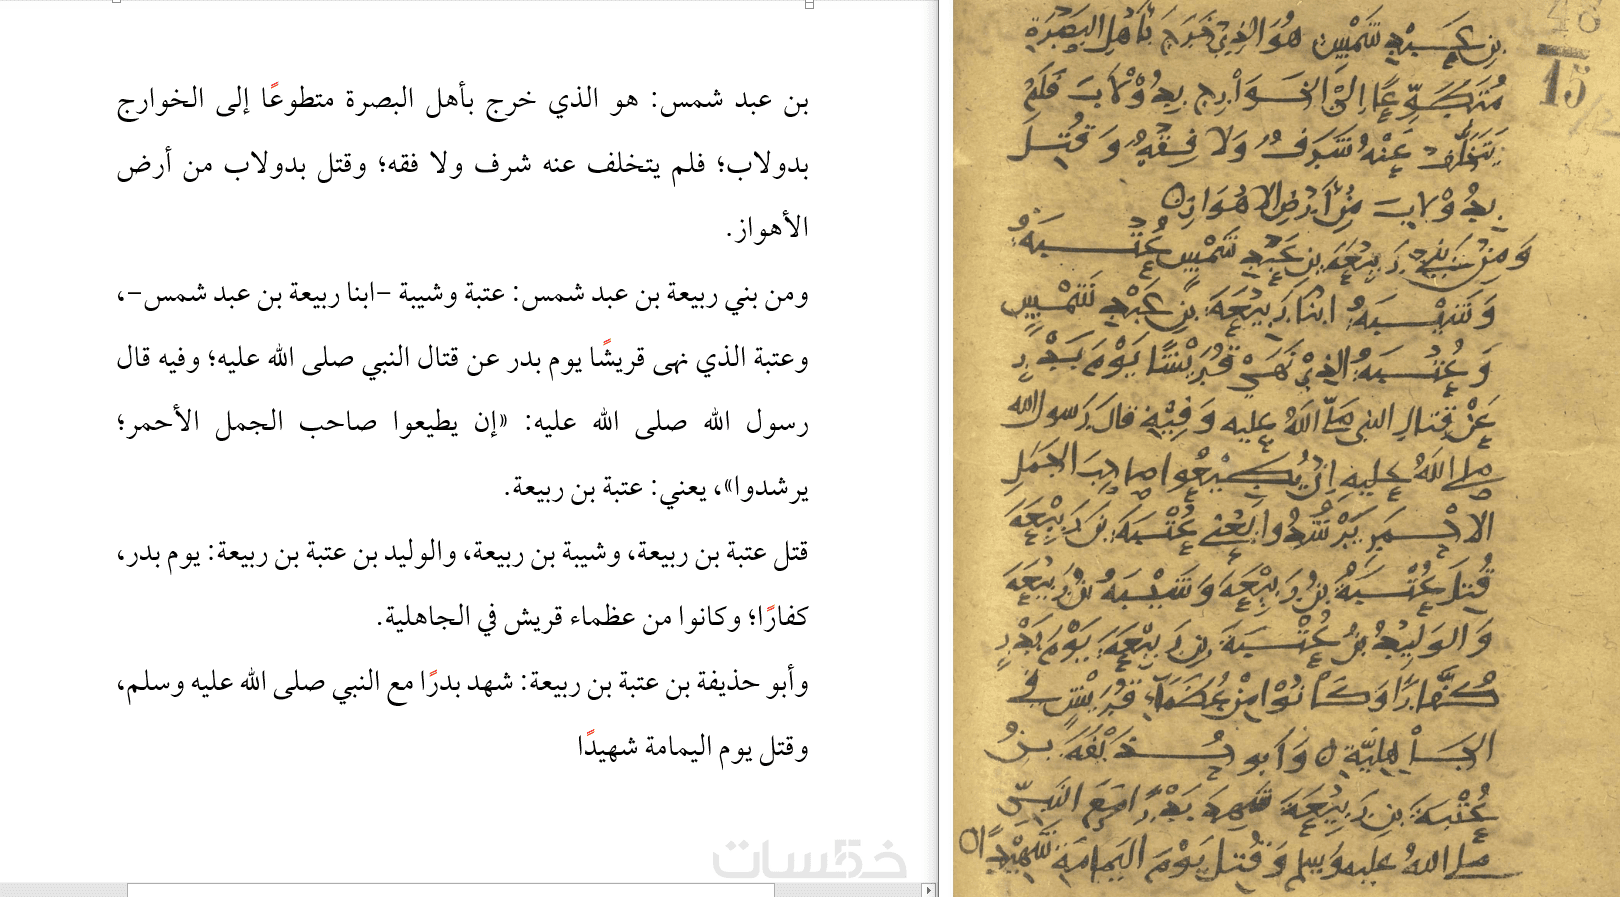 بن عبد شمس: هو الذي خرج بأهل البصرة متطوعًا إلى الخوارج
بدولاب؛ فلم يتخلف عنه شرف ولا فقه؛ وقتل بدولاب من أرض
الأهواز.
ومن بني ربيعة بن عبد شمس: عتبة وشيبة -ابنا ربيعة بن عبد شمس-،
وعتبة الذي نهى قريشًا يوم بدر عن قتال النبي صلى الله عليه؛ وفيه قال
رسول الله صلى الله عليه: «إن يطيعوا صاحب الجمل الأحمر؛
يرشدوا»، يعني: عتبة بن ربيعة.
قتل عتبة بن ربيعة، وشيبة بن ربيعة، والوليد بن عتبة بن ربيعة: يوم بدر،
كفارًا؛ وكانوا من عظماء قريش في الجاهلية.
وأبو حذيفة بن عتبة بن ربيعة: شهد بدرًا مع النبي صلى الله عليه وسلم،
وقتل يوم اليمامة شهيدًا
خمسات
48
15
بن عَبْدِ شَمْسٍ هُوَ الذِي خَرَجَ بأَهْلِ البَصْرَةِ
مُتَطَوِّعًا إلَى الخَوَارِجِ بِدُوْلابَ فَلَمْ
يَتَخَلَّفْ عَنْهُ شَرَفٌ وَلا فِقْهٌ وَقُتِلَ
بِدُوْلابَ مِنْ أَرْضِ الاهْوَازِ
وَمِنْ بَنِي رَبِيْعَةَ بنِ عَبْدِ شَمْسٍ عُتْبَةُ
وَشَيْبَةُ ابنَا رَبِيْعَةَ بنِ عَبْدِ شَمْسٍ
وَعُتْبَةُ الذِي نَهَى قُرَيْشًا يَوْمَ بَدْرٍ
عَنْ قِتَالِ النبي صلى اللهُ عليه وَفِيْهِ قَالَ رَسول الله
صلى اللهُ عليهِ إنْ يُطِيْعُوا صاحِبَ الجَمَلِ
الاحْمَرِ يَرْشُدُوا يَعْنِي عُتْبَةَ بنَ رَبِيْعَةَ
قُتِلَ عُتْبَةُ بنُ رَبِيْعَةَ وَشَيْبَةُ بنُ رَبِيْعَةَ
وَالوَلِيْدُ بنُ عُتْبَةَ بنِ رَبِيْعَةَ يَوْمَ بَدْرٍ
كُفَّارًا وَكَانُوْا مِنْ عُظَمَاءِ قُرَيْشٍ في
الجَاهِلِيَّةِ وَأبو حُذَيْفَةَ بنُ
عُتْبَةَ بنِ رَبِيْعَةَ شَهِدَ بَدْرًا مَعَ النَبِيِّ
صلى اللهُ عليه وَسلم وَقُتِلَ يَوْمَ اليَمامَةِ شَهِيْدًا